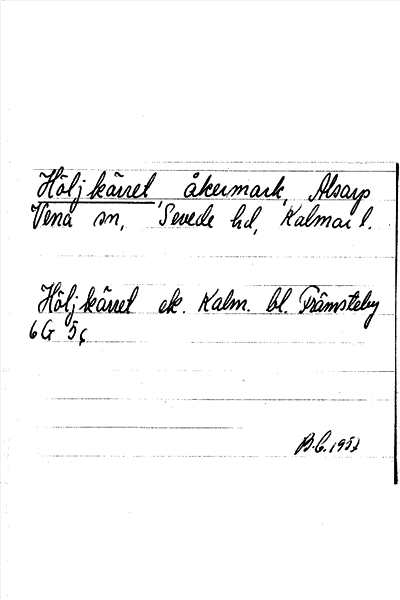 Höljkärret, åkermark, Alsarp
Vena sn, Sevede hd, Kalmar l.
Höljkärret ek. Kalm. bl. Främsteby
6G 5c
B.C. 1951